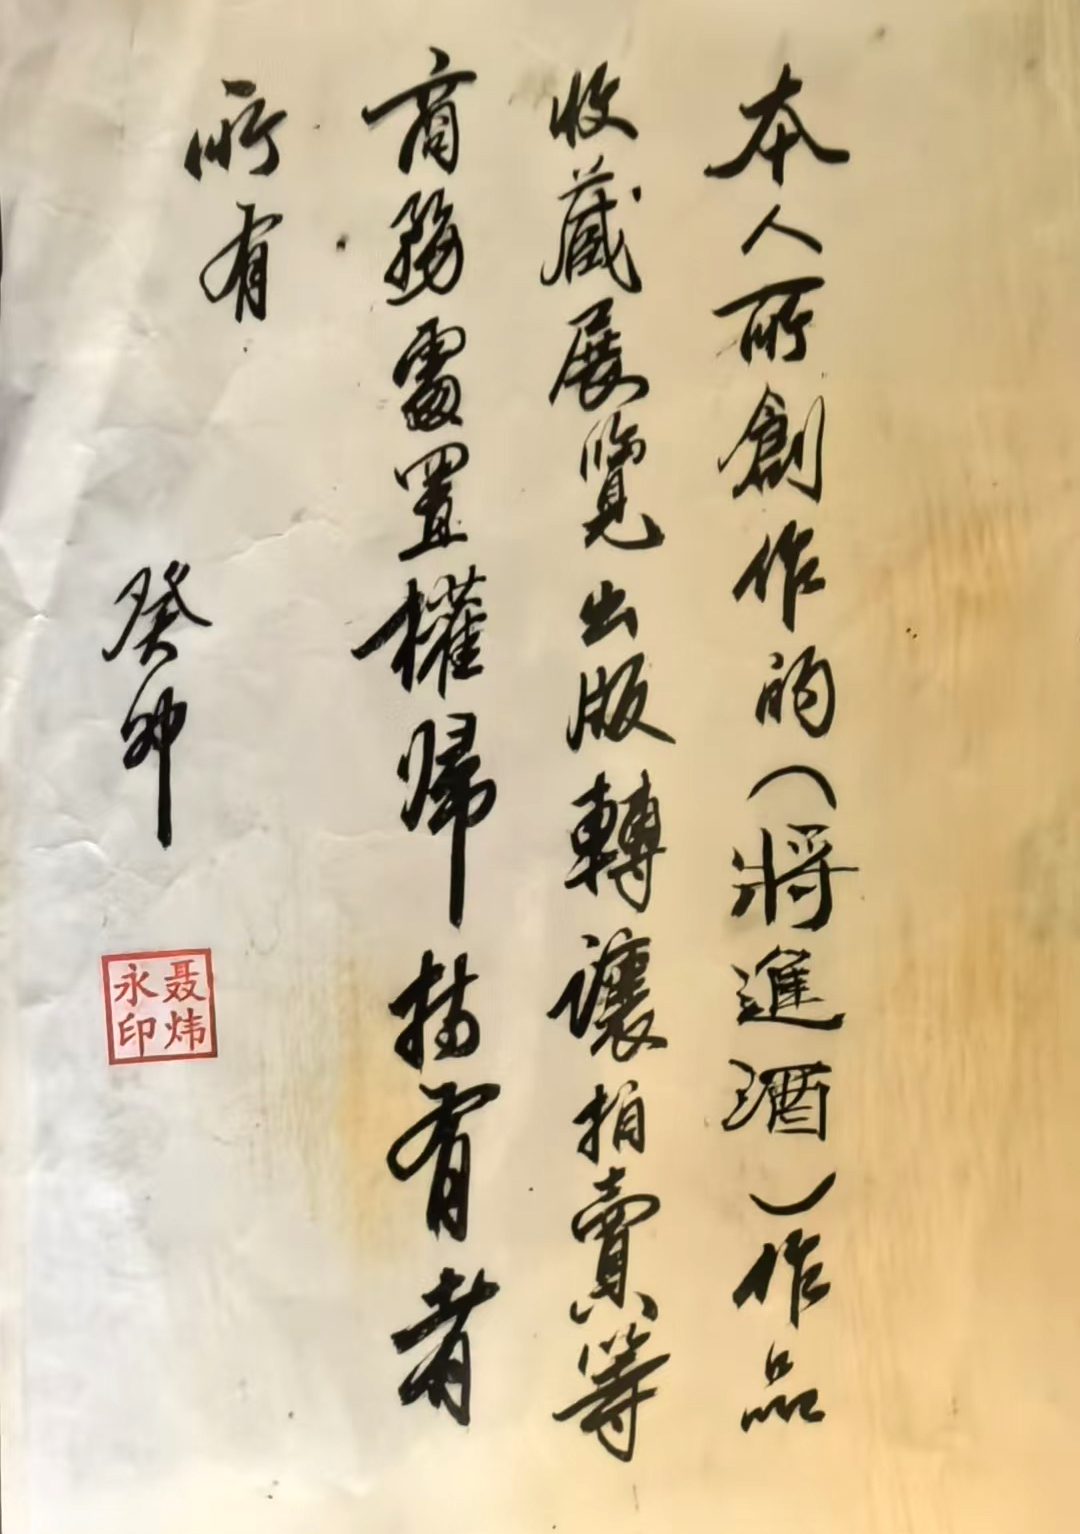 本人所創作的(將進酒)作品
收藏展覽出版轉讓拍賣等
商務處置權歸持有者
所有
癸卯
聂炜
永印